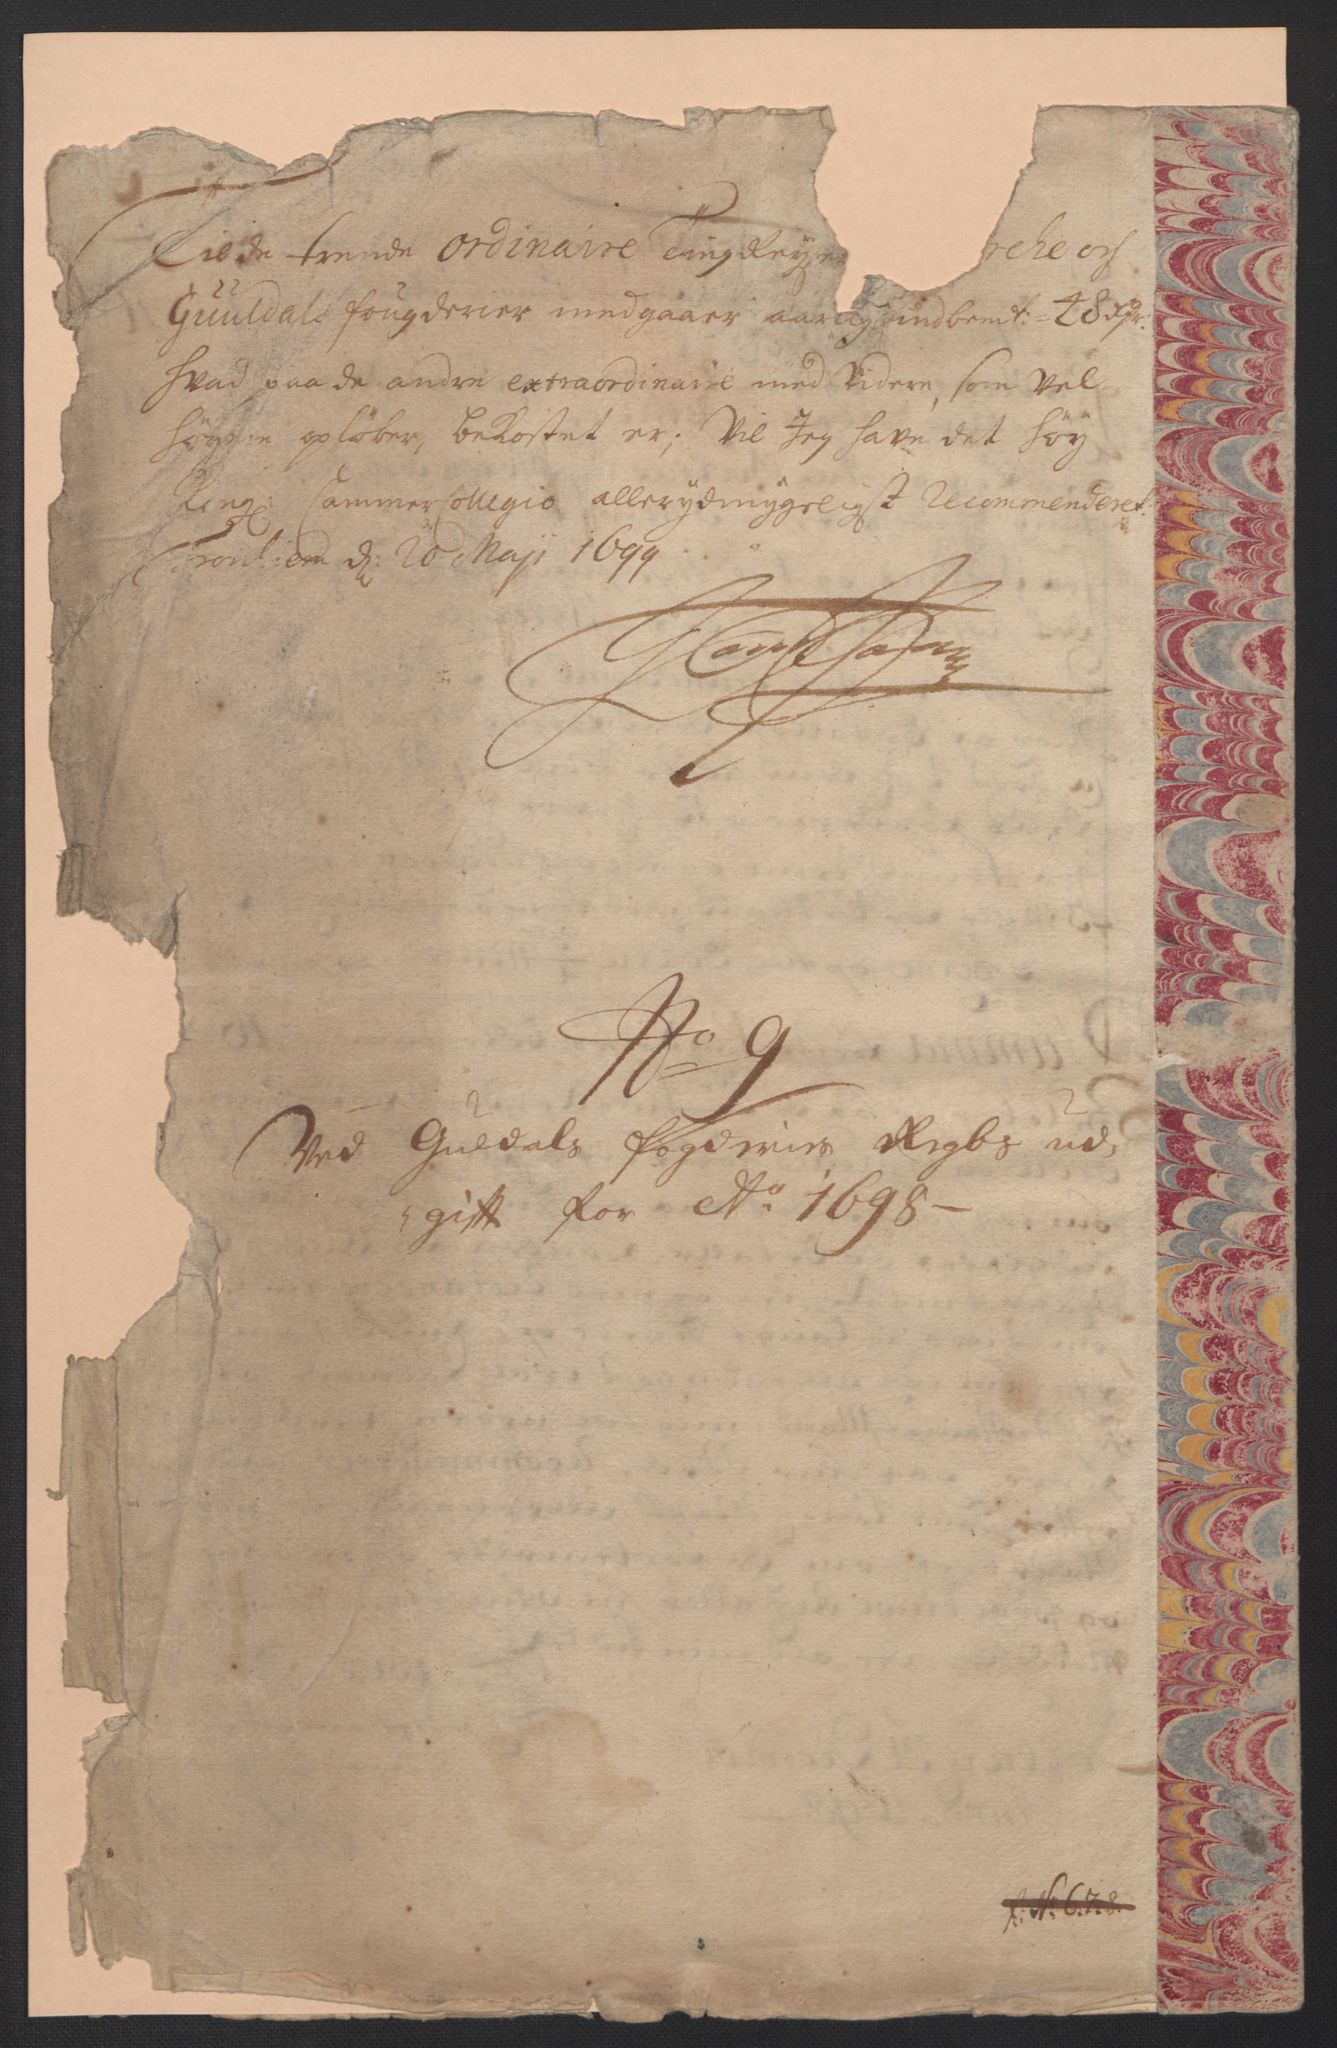 Til de trende ordinaire Ting Reyse rche och
Guuldals fougderier medgaaer aarlig indbemt: 48 Rdr:
hvad paa de andre extraordinaire med videre, som vel
höyere opløber, bekostet er; Vil Jeg have det höy
Kongl: CammerCollegio allerydmygeligst Recommenderet.
Tronhiem d: 20 Maji 1699
No 9
Ved Guldals fogderies Regbs ud,
gift for Ao 1698 –
No: 6.7.8.